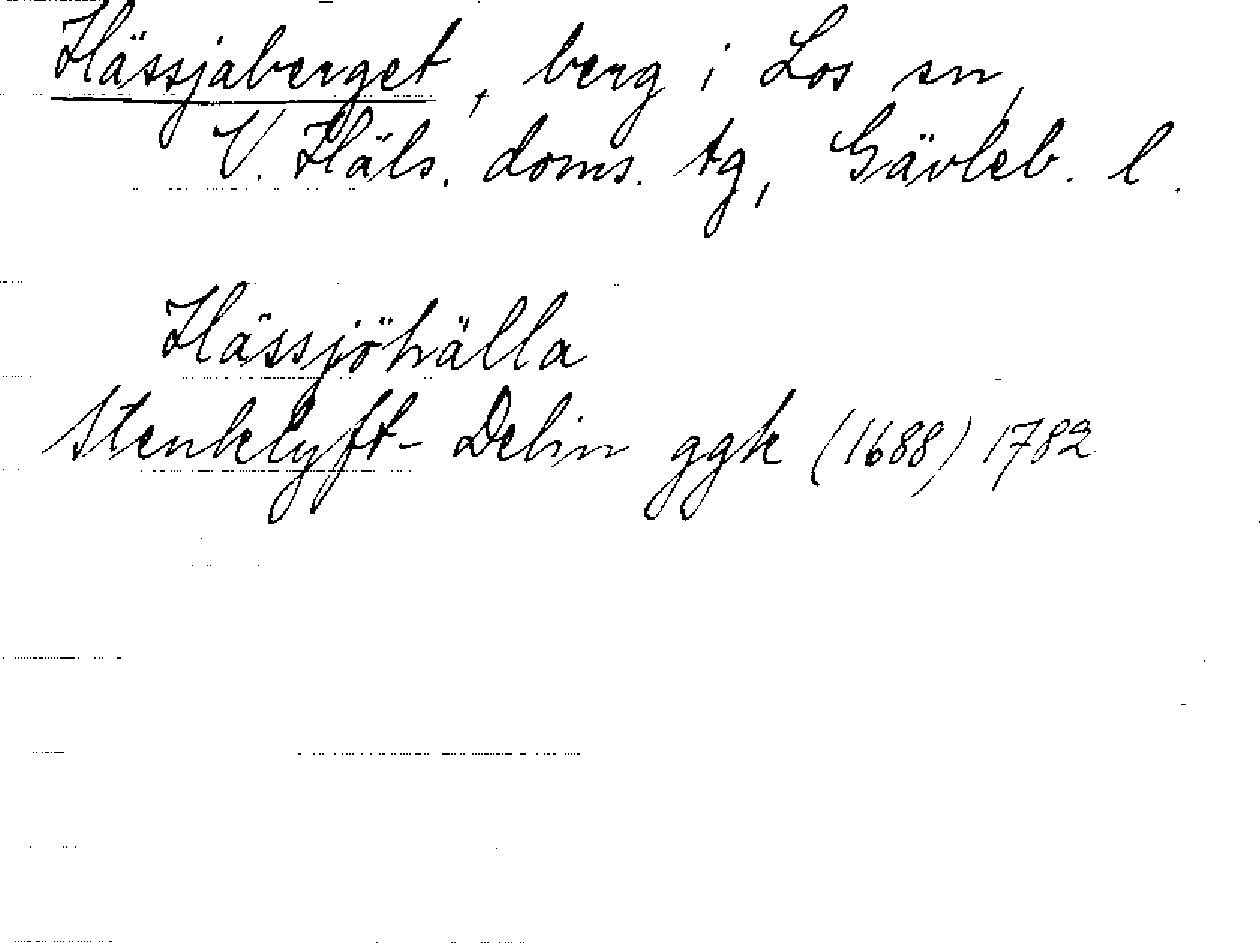 Hässjaberget, berg i Los sn,
V. Häls. doms. tg, Gävleb. l.
Hässjöhälla
Stenklyft- Delin ggk (1688) 1782